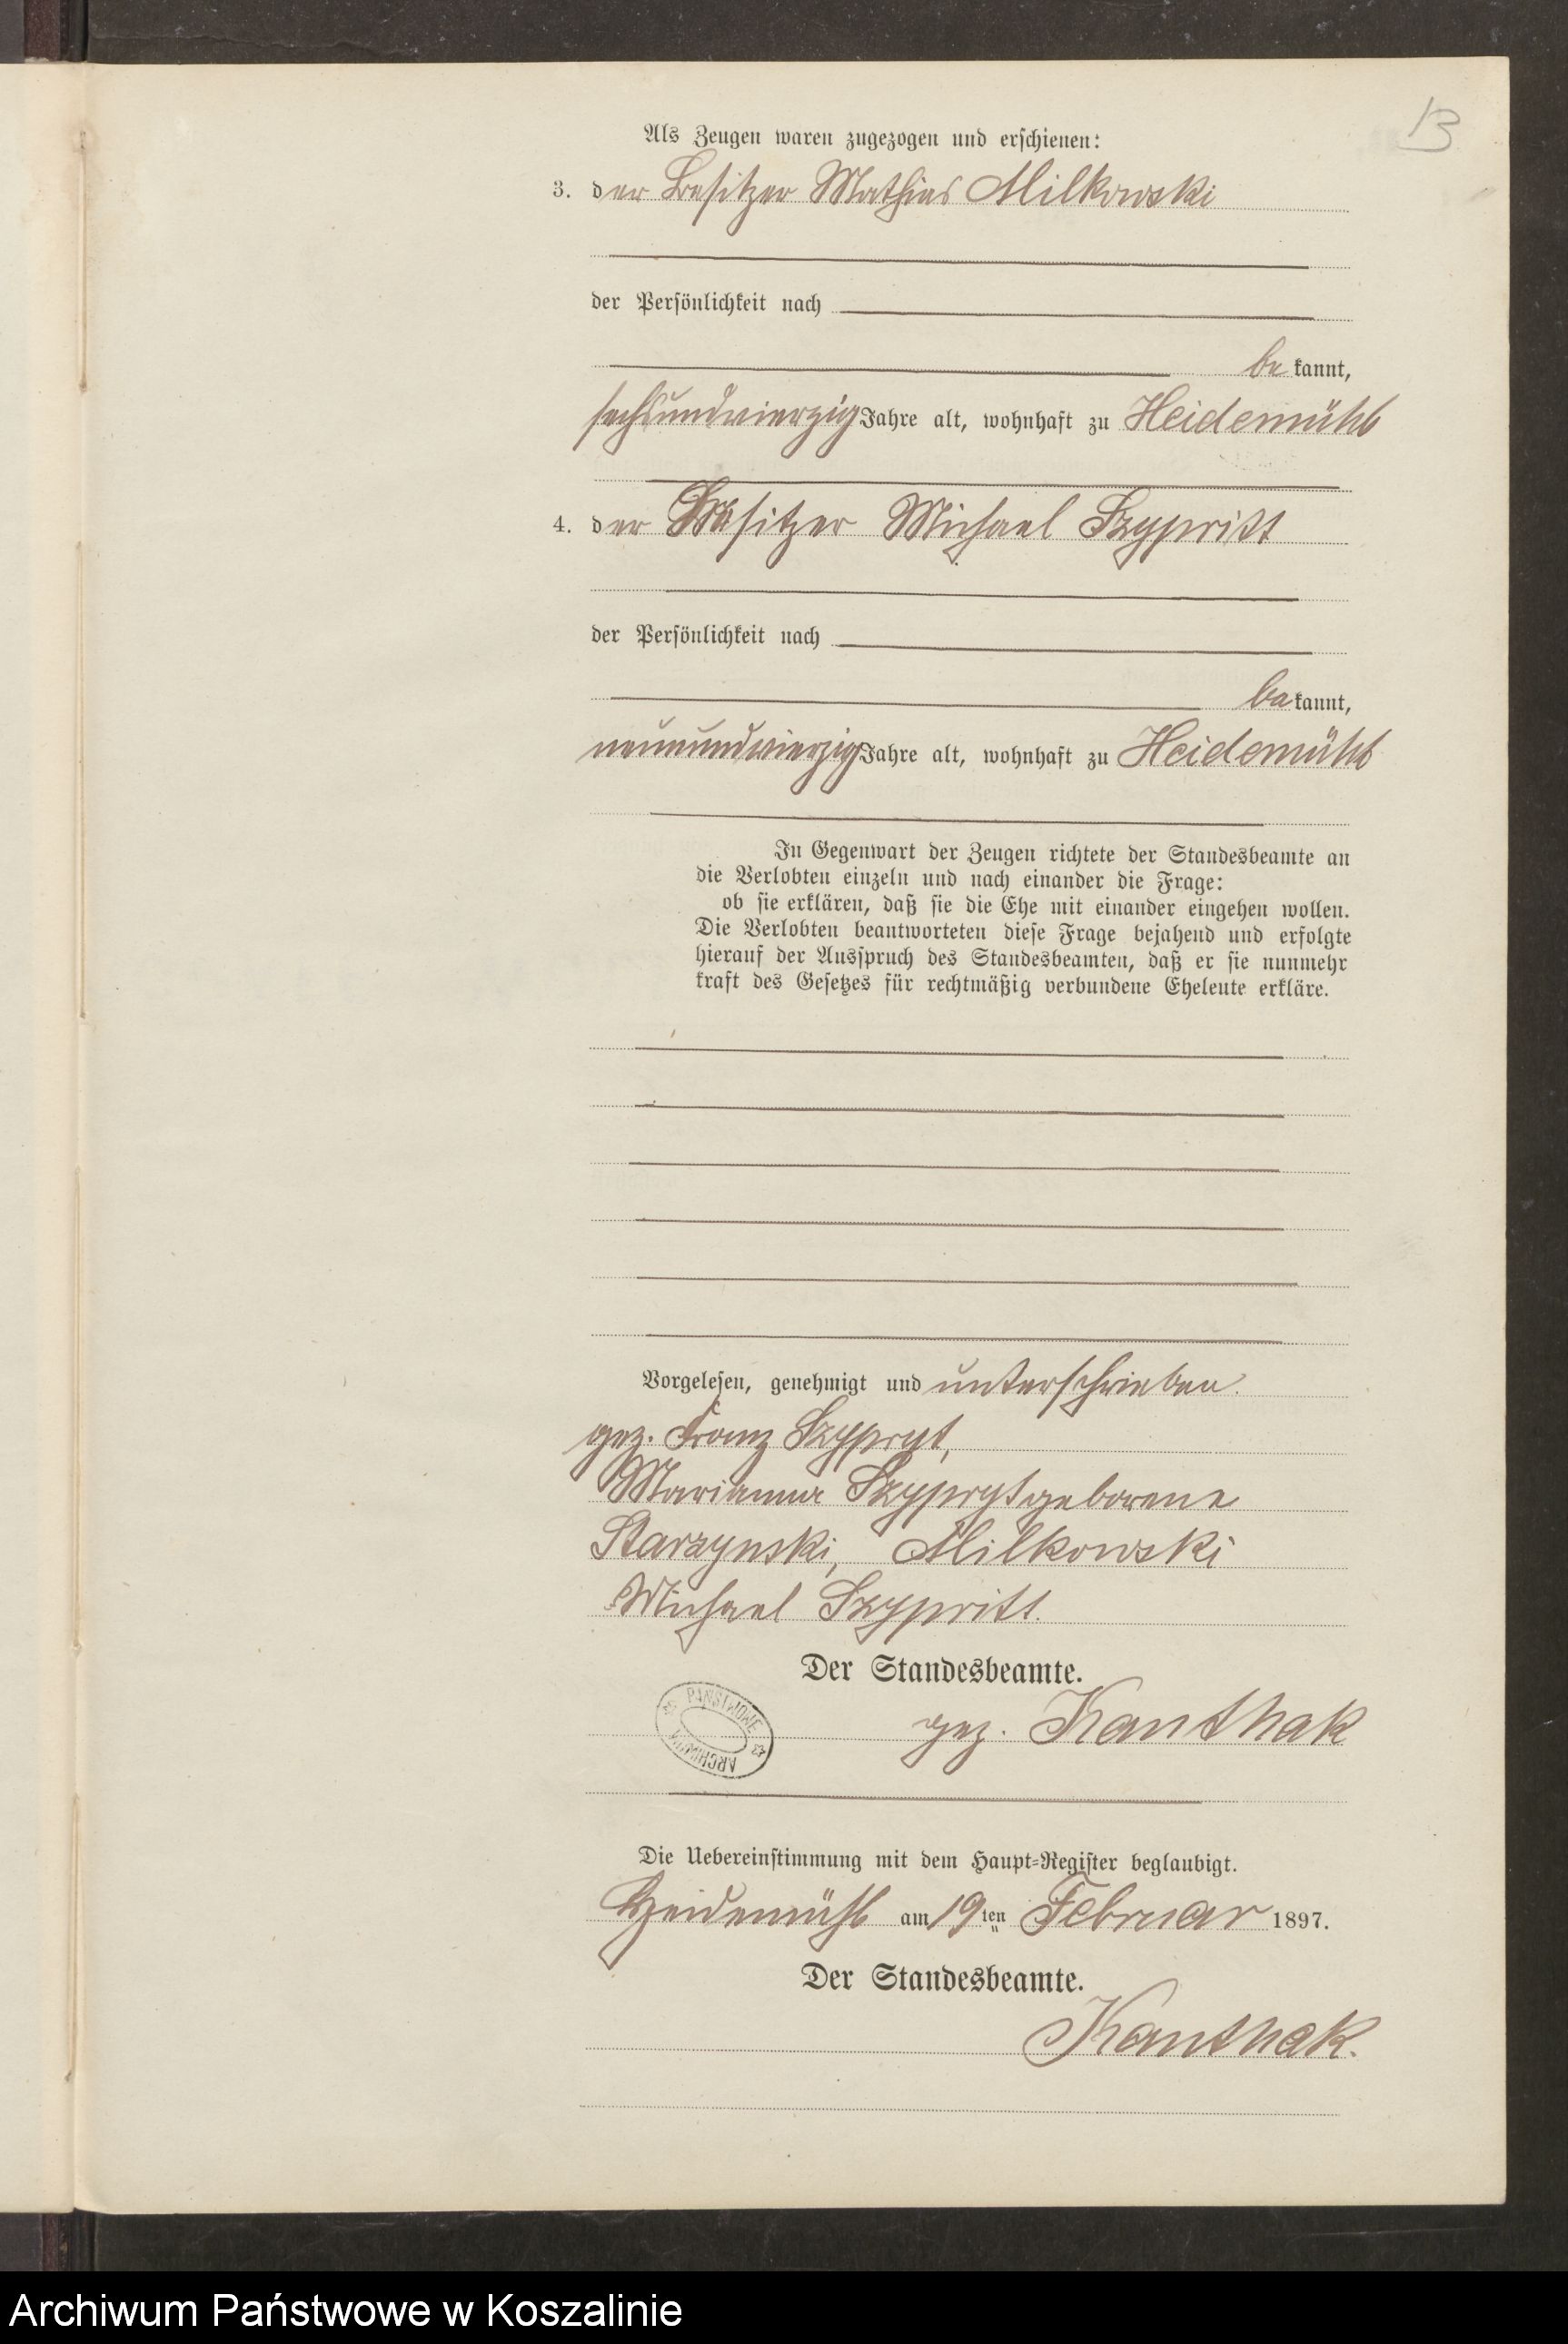 13
Als Zeugen waren zugezogen und erschienen:
3. der Besitzer Mathias Milkowski
der Persönlichkeit nach
be kannt,
sechsundvierzig Jahre alt, wohnhaft zu Heidemühl
4. der Besitzer Michael Szypritt
der Persönlichkeit nach
be kannt,
neunundvierzig Jahre alt, wohnhaft zu Heidemühl
In Gegenwart der Zeugen richtete der Standesbeamte an
die Verlobten einzeln und nach einander die Frage:
ob sie erklären, daß sie die Ehe mit einander eingehen wollen.
Die Verlobten beantworteten diese Frage bejahend und erfolgte
hierauf der Ausspruch des Standesbeamten, daß er sie nunmehr
kraft des Gesetzes für rechtmäßig verbundene Eheleute erkläre.
Vorgelesen, genehmigt und unterschrieben.
gez. Franz Szypryt,
Marianna Szypryt geborene
Starzynski, Milkowski
Michael Szypritt.
Der Standesbeamte.
gez. Kanthak
PAŃSTWOWE ARCHIWUM
Die Uebereinstimmung mit dem Haupt-Register beglaubigt.
Heidemühl am 19ten Februar 1897.
Der Standesbeamte.
Kanthak.
Archiwum Państwowe w Koszalinie